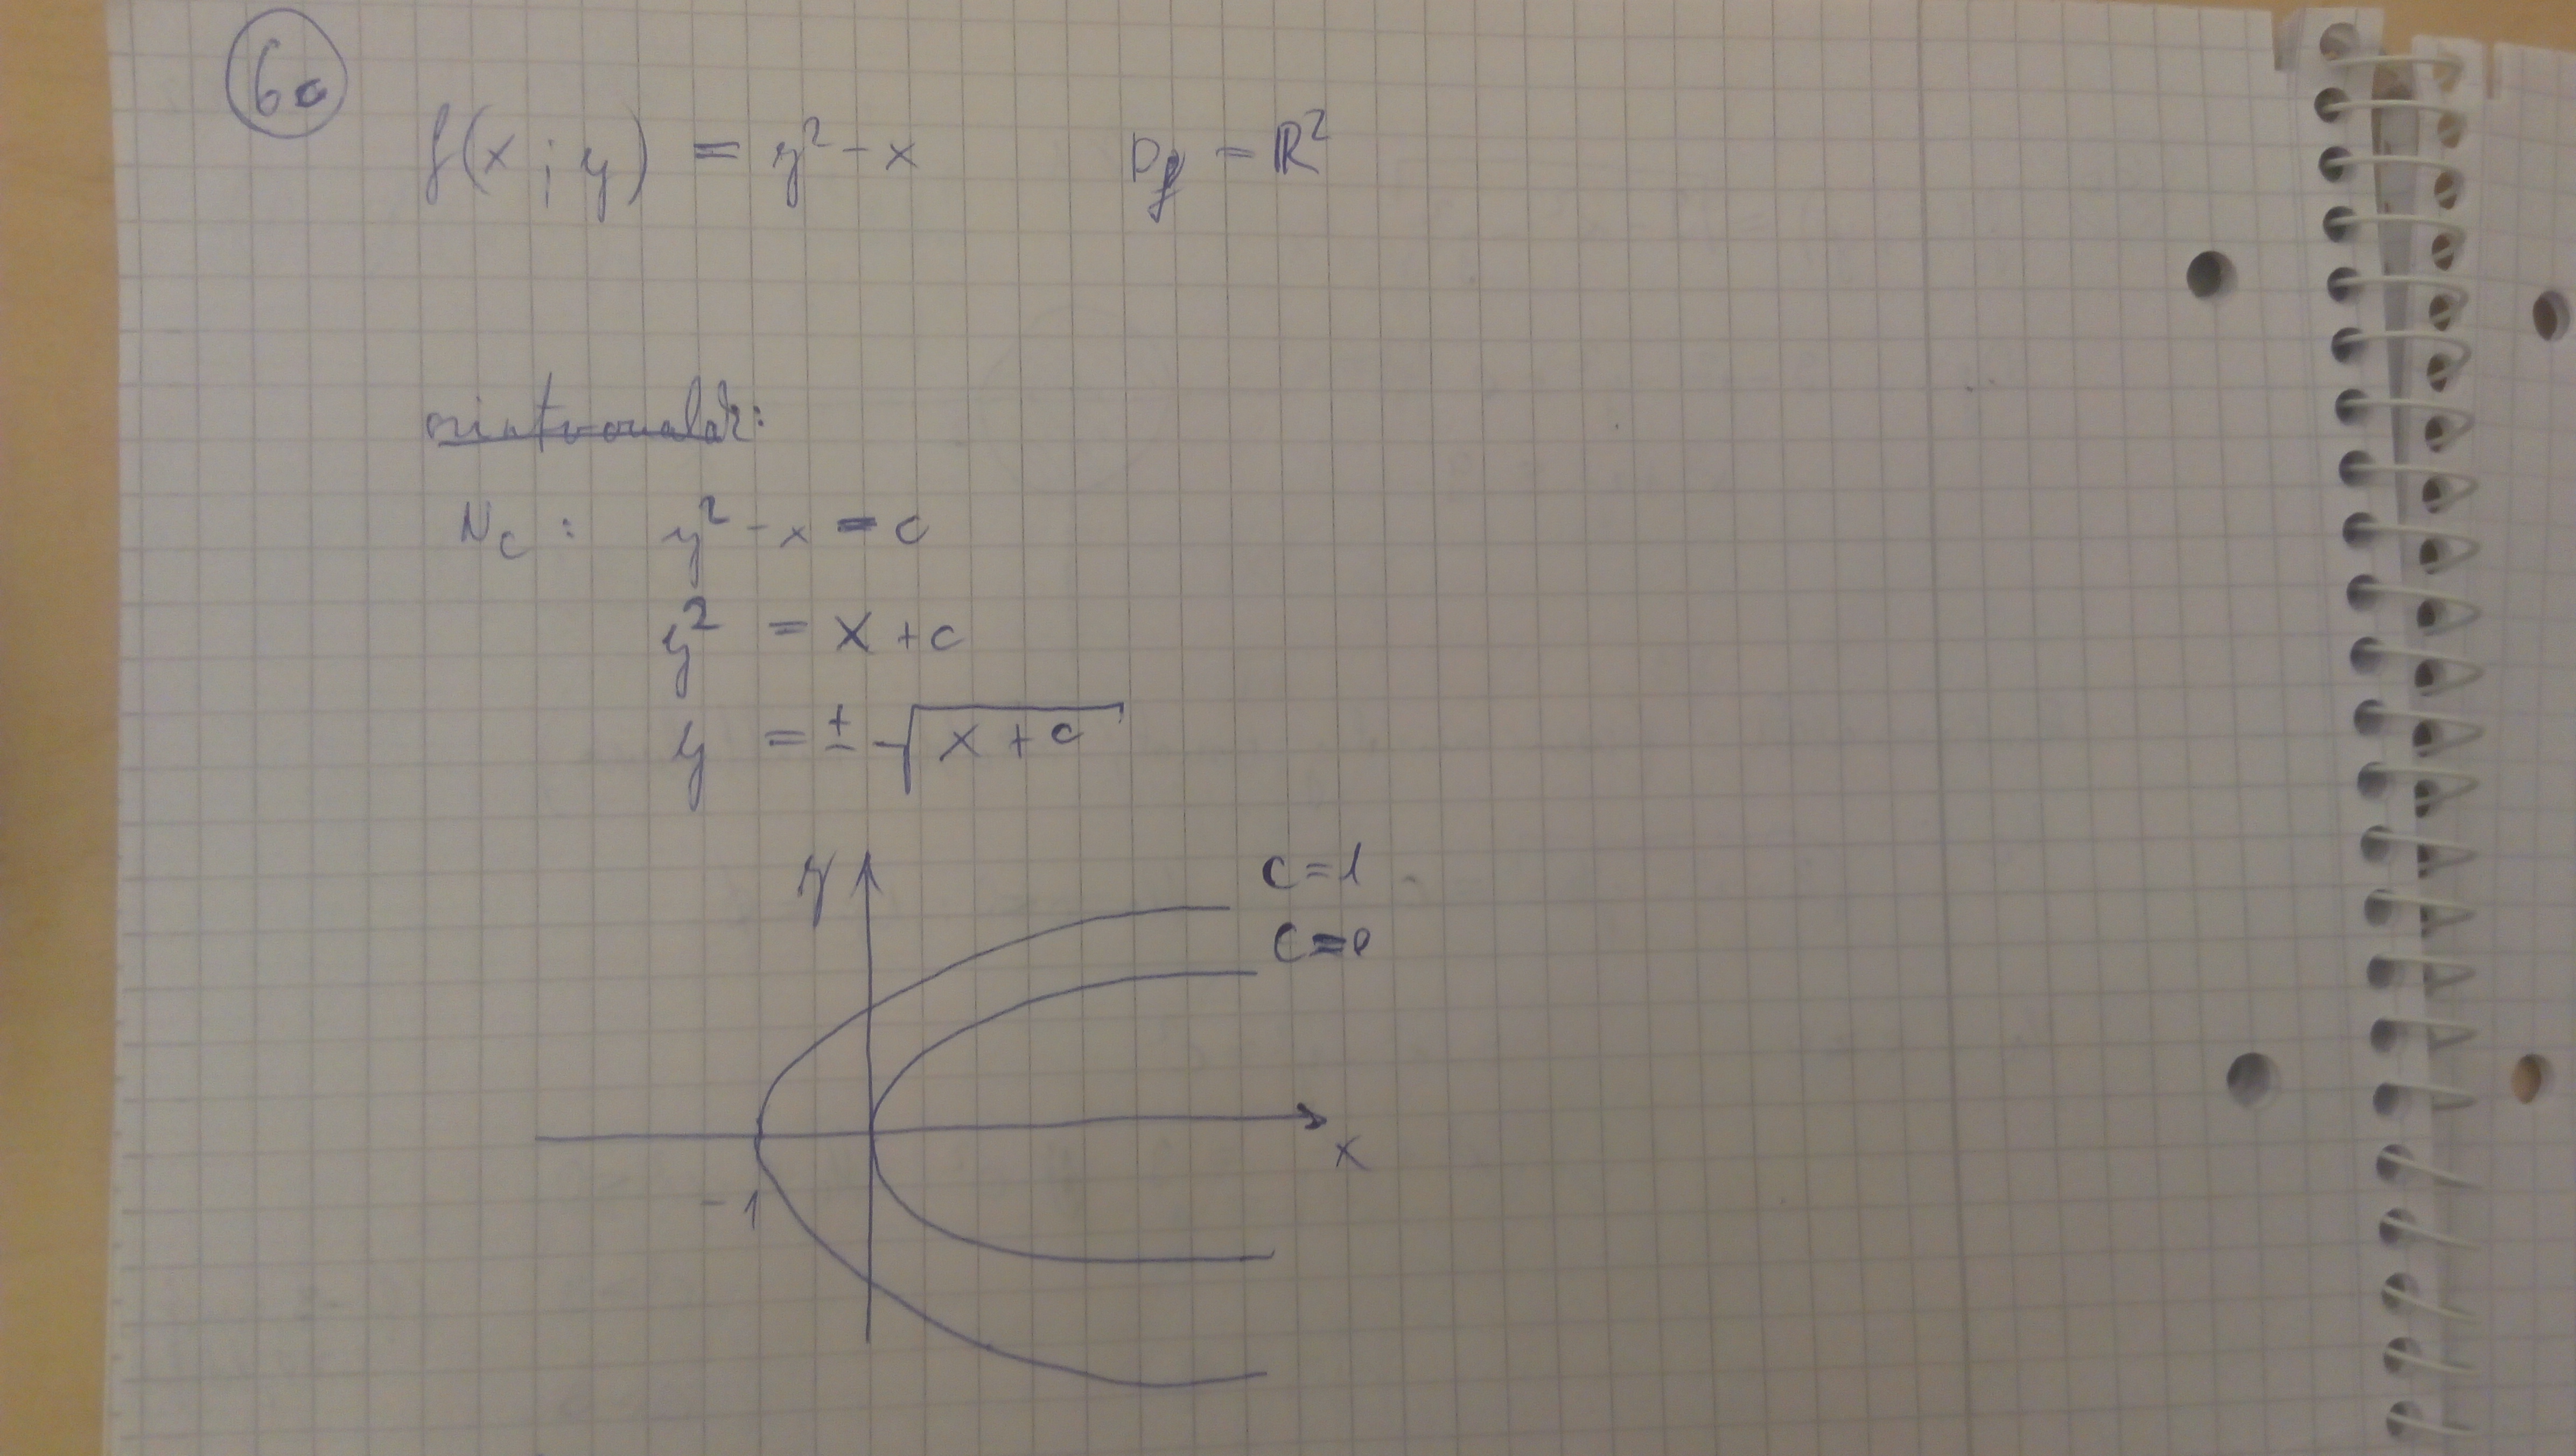 6a
f(x ; y) = y² - x D_f = ℝ²
szintvonalak:
N_c : y² - x = c
y² = x + c
y = ± √(x + c)
y
c = 1
c = 0
x
-1